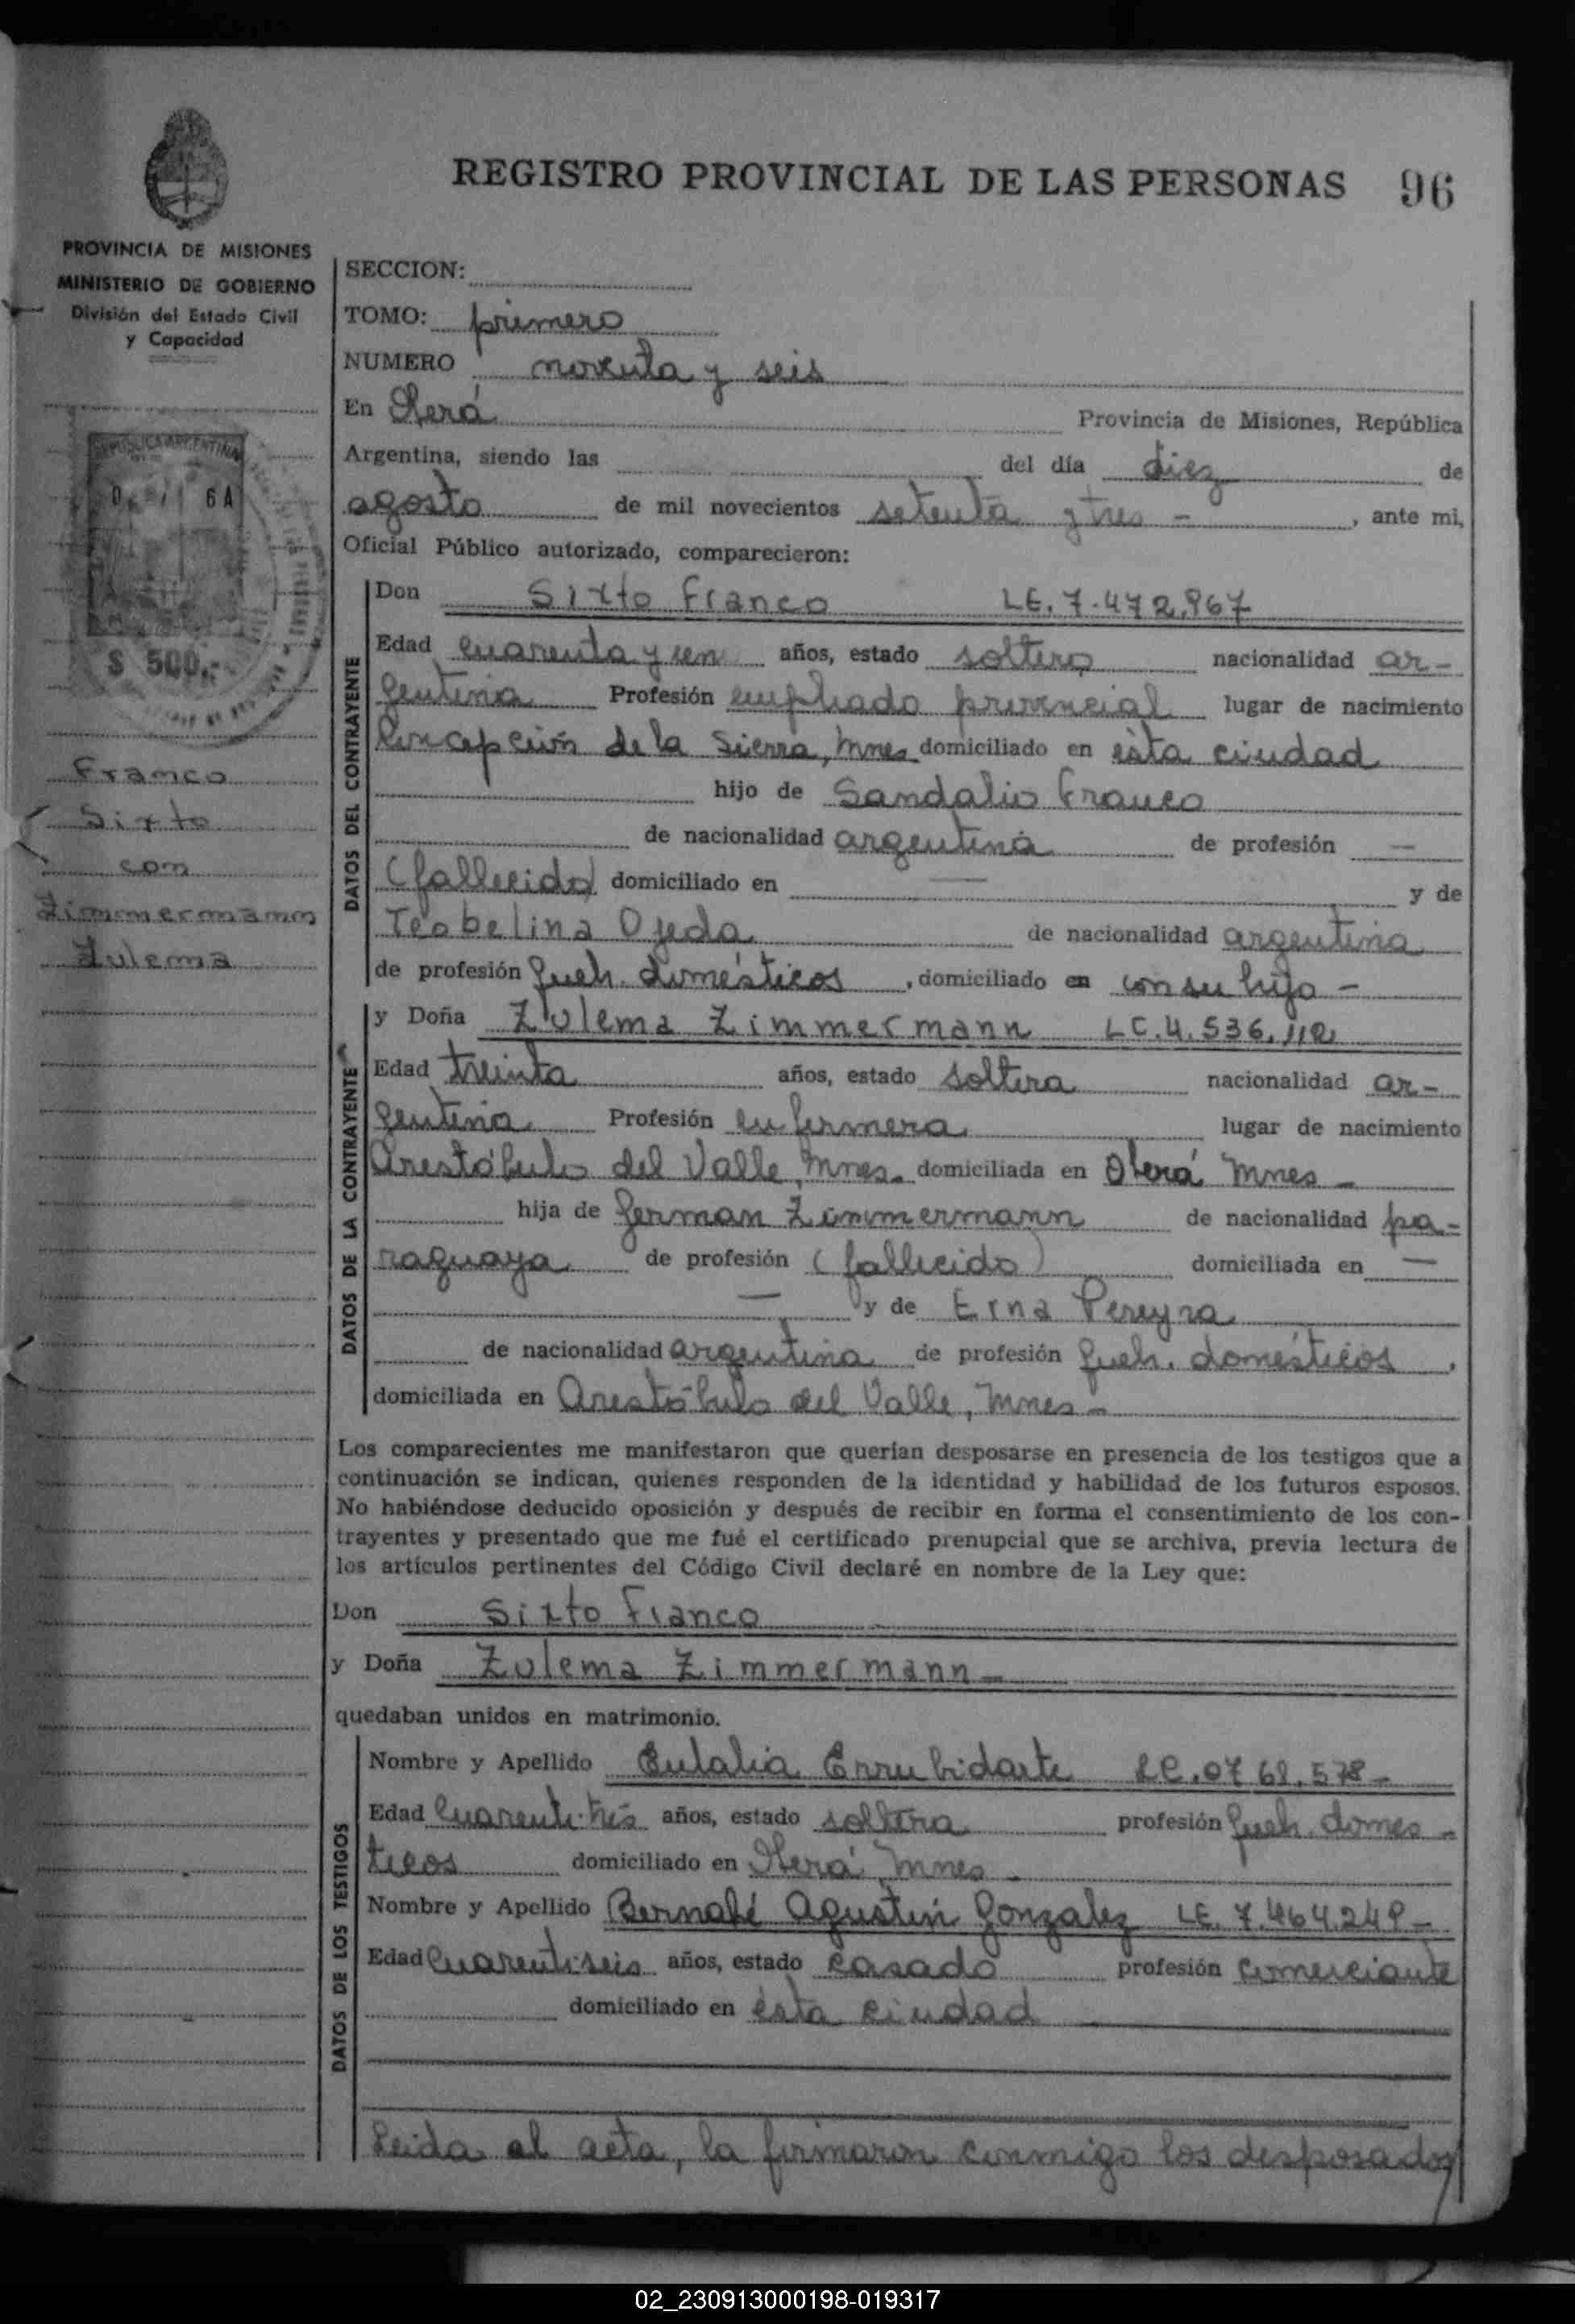 REGISTRO PROVINCIAL DE LAS PERSONAS 96
PROVINCIA DE MISIONES
MINISTERIO DE GOBIERNO
División del Estado Civil
y Capacidad
REPUBLICA ARGENTINA
6A
$ 500.-
Franco
Sixto
con
Zimmermann
Zulema
SECCION:
TOMO: primero
NUMERO noventa y seis
En Oberá Provincia de Misiones, República
Argentina, siendo las del día diez de
agosto de mil novecientos setenta y tres - , ante mi,
Oficial Público autorizado, comparecieron:
DATOS DEL CONTRAYENTE
Don Sixto Franco LE. 7.472.967
Edad cuarenta y un años, estado soltero nacionalidad ar-
gentina Profesión empleado provincial lugar de nacimiento
Concepción de la Sierra, Mnes domiciliado en ésta ciudad
hijo de Sandalio Franco
de nacionalidad argentina de profesión —
(fallecido) domiciliado en — y de
Teobelina Ojeda de nacionalidad argentina
de profesión queh. domésticos , domiciliado en con su hijo -
DATOS DE LA CONTRAYENTE
y Doña Zulema Zimmermann LC. 4.536.112
Edad treinta años, estado soltera nacionalidad ar-
gentina Profesión enfermera lugar de nacimiento
Arestóbulo del Valle, Mnes. domiciliada en Oberá Mnes -
hija de German Zimmermann de nacionalidad pa-
raguaya de profesión (fallecido) domiciliada en —
— y de Erna Pereyra
de nacionalidad argentina de profesión queh. domésticos ,
domiciliada en Arestóbulo del Valle, Mnes -
Los comparecientes me manifestaron que querían desposarse en presencia de los testigos que a
continuación se indican, quienes responden de la identidad y habilidad de los futuros esposos.
No habiéndose deducido oposición y después de recibir en forma el consentimiento de los con-
trayentes y presentado que me fué el certificado prenupcial que se archiva, previa lectura de
los artículos pertinentes del Código Civil declaré en nombre de la Ley que:
Don Sixto Franco
y Doña Zulema Zimmermann -
quedaban unidos en matrimonio.
DATOS DE LOS TESTIGOS
Nombre y Apellido Eulalia Errubidarte LC. 0768.578-
Edad cuarentitrés años, estado soltera profesión queh. domes-
ticos domiciliado en Oberá, Mnes -
Nombre y Apellido Bernabé Agustin Gonzalez LE. 7.464.249-
Edad cuarentiseis años, estado casado profesión comerciante
domiciliado en ésta ciudad
Leida el acta, la firmaron conmigo los desposados
02_230913000198-019317